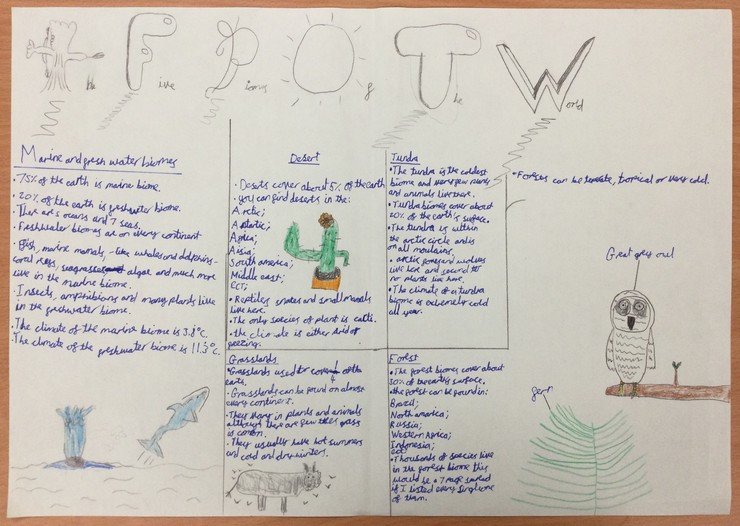 The Five Biomes Of The World
Marine and fresh water biomes
• 75% of the earth is marine biome.
• 20% of the earth is freshwater biome.
• There are 5 oceans and 7 seas.
• Freshwater biomes are on every continent
• Fish, marine mamals, - like whales and dolphins -
coral reefs, algae and much more
live in the marine biome.
• Insects, amphibians and many plants live
in the freshwater biome.
• The climate of the marine biome is 3.8°c.
• The climate of the freshwater biome is 11.3°c.
Desert
• Deserts cover about 5% of the earth
• you can find deserts in the:
Arctic;
Africa;
Asia;
South america;
Middle east;
ect;
• Reptiles, snakes and small mamals
live here.
• The only species of plant is cacti.
• the climate is either Arid or
freezing.
Tundra
• The tundra is the coldest
biome and very few plants
and animals live there.
• Tundra biomes cover about
20% of the earth's surface.
• The tundra is within
the arctic circle and is
on all moutains.
• arctic foxes and wolves
live here and second to
no plants live here.
• The climate of a tundra
biome is extremely cold
all year.
• Forests can be tropical or very cold.
Great grey owl
Grasslands
• Grasslands used to cover of the
earth.
• Grasslands can be found on almost
every continent.
• They vary in plants and animals
although there are few trees grass
is comon.
• They usually have hot summers
and cold and dry winters.
Forest
• The forest biomes cover about
30% of the earth's surface.
• the forest can be found in:
Brazil;
North america;
Russia;
Western Africa;
Indonesia;
ect
• Thousands of species live
in the forest biome this
would be a 7 page spread
if I listed every single one
of them.
fern